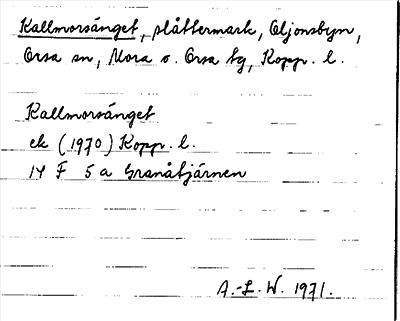 Kallmorsänget, slåttermark, Oljonsbyn,
Orsa sn, Mora o. Orsa tg, Kopp. l.
Kallmorsänget
ek (1970) Kopp. l.
14 F 5 a Granåtjärnen
A.-L. W. 1971.